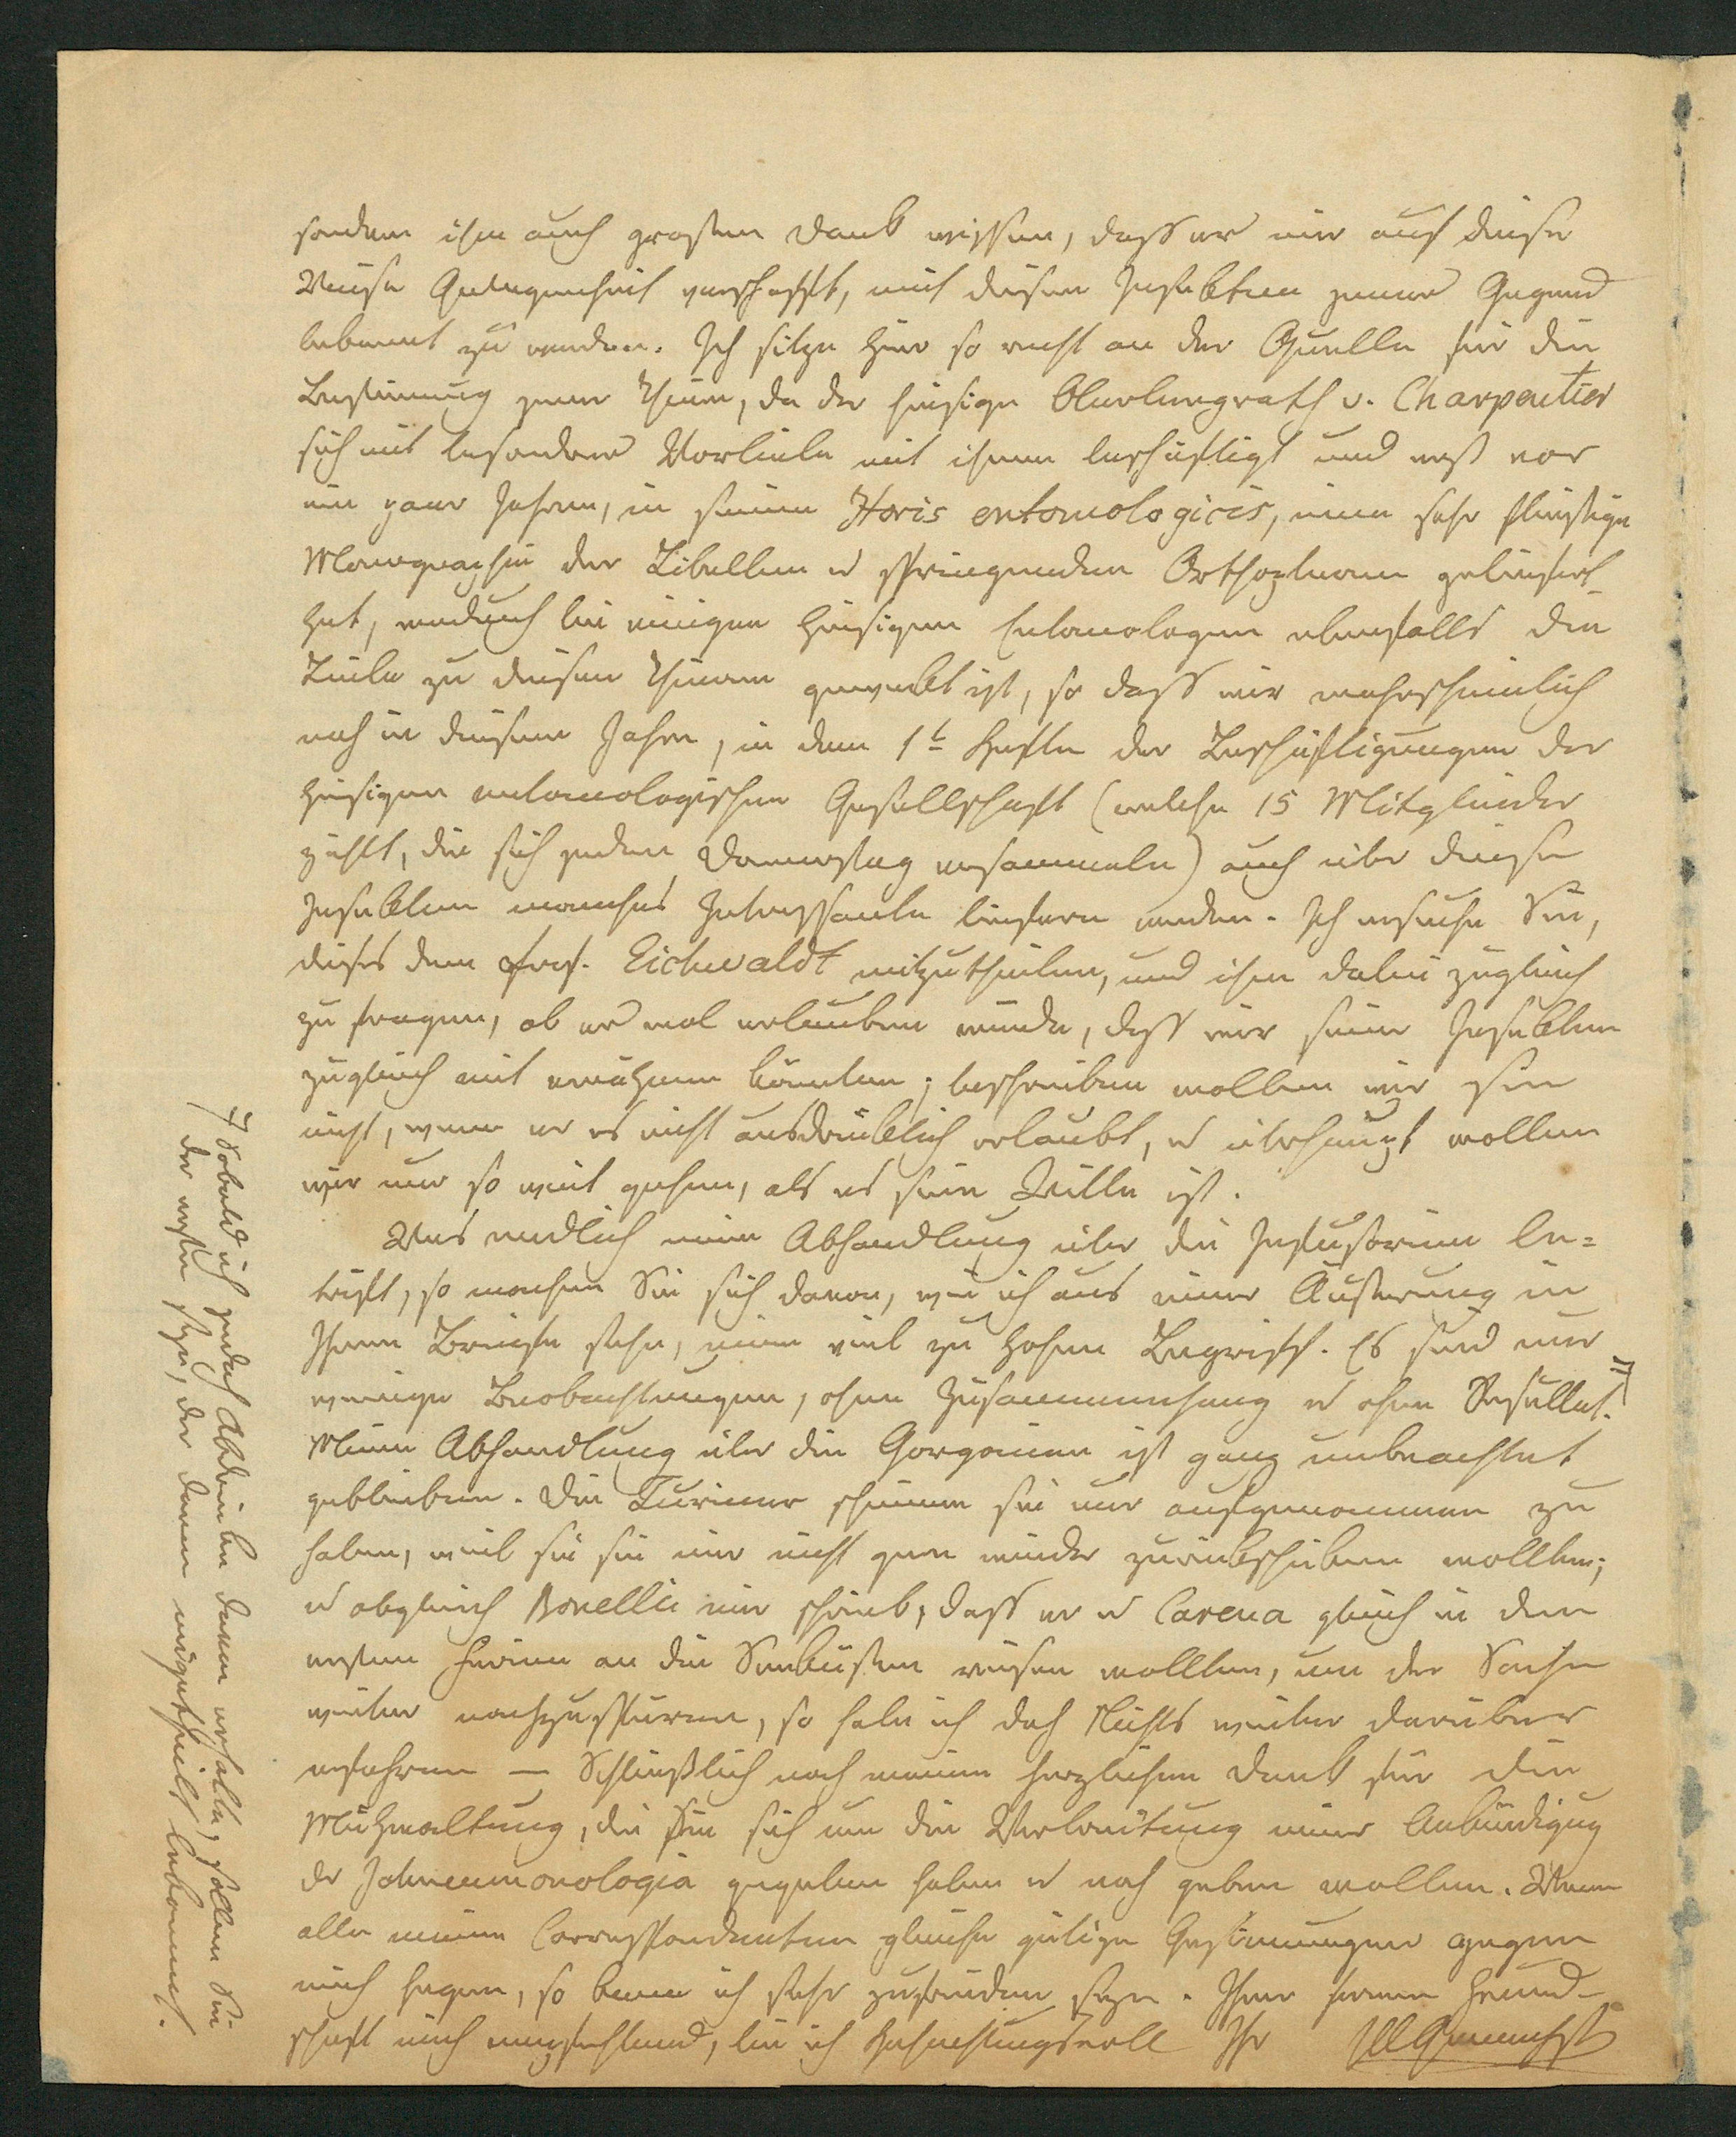 sondern ihm auch großen Dank wissen, dass er mir auf diese
Weise Gelegenheit verschafft, mit diesen Insekten jener Gegend
bekannt zu werden. Ich sitze hier so recht an der Quelle für die
Bestimmung jener Thiere, da der hiesige Oberbergrath v. Charpentier
sich mit besonderer Vorliebe mit ihnen beschäftigt und erst vor
ein paar Jahren, in seinen Horis entomologicis, eine sehr fleißige
Monographie der Libellen u springenden Orthopteren geliefert
hat, wodurch bei einigen hiesigen Entomologen ebenfalls die
Liebe zu diesen Thieren geweckt ist, so dass wir wahrscheinlich
noch in diesem Jahre, in dem 1t Hefte der Beschäftigungen der
hiesigen entomologischen Gesellschaft (welche 15 Mitglieder
zählt, die sich jeden Donnerstag versammeln) auch über diese
Insekten manches Interessante liefern werden. Ich ersuche Sie,
dieses dem Prof. Eichwaldt mitzutheilen, und ihn dabei zugleich
zu fragen, ob er wol erlauben würde, dass wir seine Insekten
zugleich mit erwähnen könnten; beschreiben wollen wir sie
nicht, wenn er es nicht ausdrücklich erlaubt, u überhaupt wollen
wir nur so weit gehen, als es sein Wille ist.
Was endlich meine Abhandlung über die Infusorien be=
trifft, so machen Sie sich davon, wie ich aus einer Äußerung in
Ihrem Briefe sehe, einen viel zu hohen Begriff. Es sind nur
wenige Beobachtungen, ohne Zusammenhang u ohne Resultat.
Meine Abhandlung über die Gorgonien ist ganz unbeachtet
geblieben. Die Turiner scheinen sie nur aufgenommen zu
haben, weil sie sie mir nicht gern wieder zurückschicken wollten;
u obgleich Bonelli mir schrieb, dass er u Carena gleich in den
ersten Ferien an die Seeküsten reisen wollten, um der Sache
weiter nachzuspüren, so habe ich doch Nichts weiter darüber
erfahren — Schließlich noch meinen herzlichen Dank für die
Mühwaltung, die Sie sich um die Verbreitung meiner Ankündigung
der Ichneumonologia gegeben haben u noch geben wollen. Wenn
alle meine Correspondenten gleiche gütige Gesinnungen gegen
mich hegen, so kann ich sehr zufrieden seyn. Ihrer fernern Freund-
schaft mich empfehlend, bin ich Hochachtungsvoll Ihr Gravenhorst
Sobald ich jedoch Abdrücke davon erhalte, sollen Sie
der erste seyn, der davon mitgetheilt bekommt.